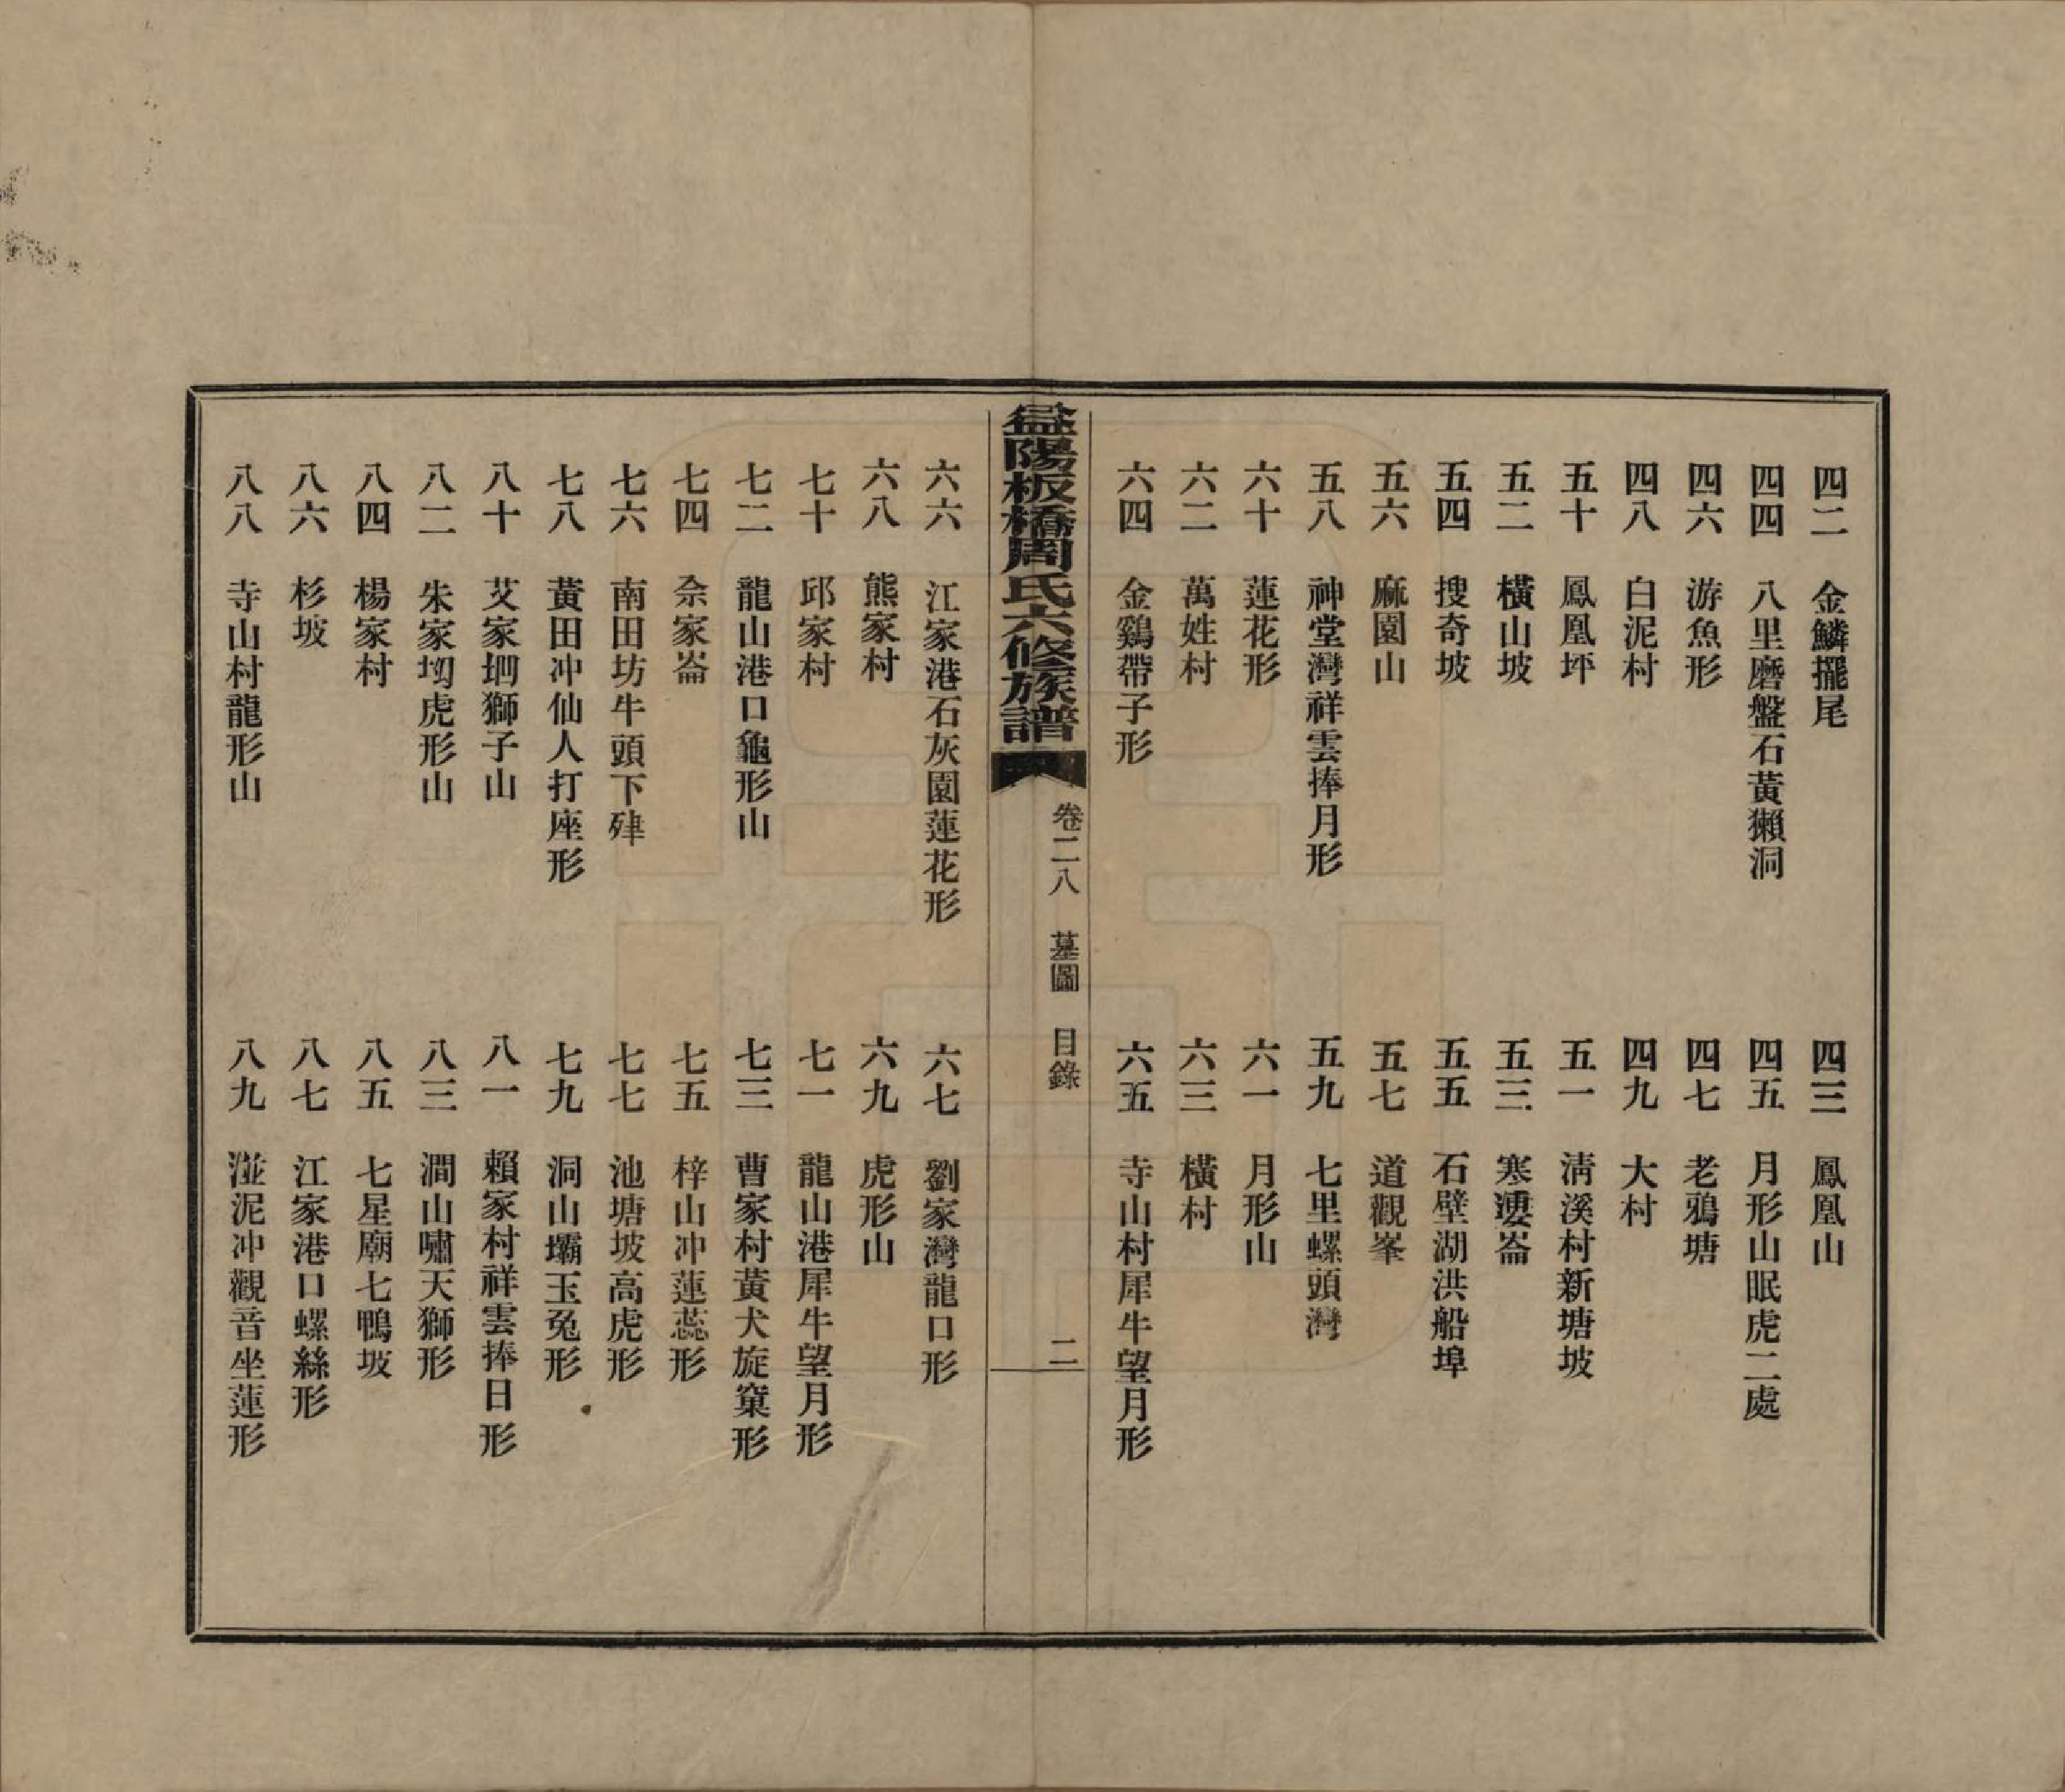 四二 金鱗擺尾 四三 鳳凰山
四四 八里磨盤石黃獺洞 四五 月形山眠虎二處
四六 游魚形 四七 老鴉塘
四八 白泥村 四九 大村
五十 鳳凰坪 五一 淸溪村新塘坡
五二 橫山坡 五三 寒婆崙
五四 搜奇坡 五五 石壁湖洪船埠
五六 麻園山 五七 道觀峯
五八 神堂灣祥雲捧月形 五九 七里螺頭灣
六十 蓮花形 六一 月形山
六二 萬姓村 六三 橫村
六四 金鷄帶子形 六五 寺山村犀牛望月形
益陽板橋周氏六修族譜 卷二八 墓圖 目錄 二
六六 江家港石灰園蓮花形 六七 劉家灣龍口形
六八 熊家村 六九 虎形山
七十 邱家村 七一 龍山港犀牛望月形
七二 龍山港口龜形山 七三 曹家村黃犬旋窠形
七四 佘家崙 七五 梓山冲蓮蕊形
七六 南田坊牛頭下 七七 池塘坡高虎形
七八 黃田冲仙人打座形 七九 洞山壩玉兔形
八十 艾家獅子山 八一 賴家村祥雲捧日形
八二 朱家坳虎形山 八三 澗山嘯天獅形
八四 楊家村 八五 七星廟七鴨坡
八六 杉坡 八七 江家港口螺絲形
八八 寺山村龍形山 八九 湴泥冲觀音坐蓮形